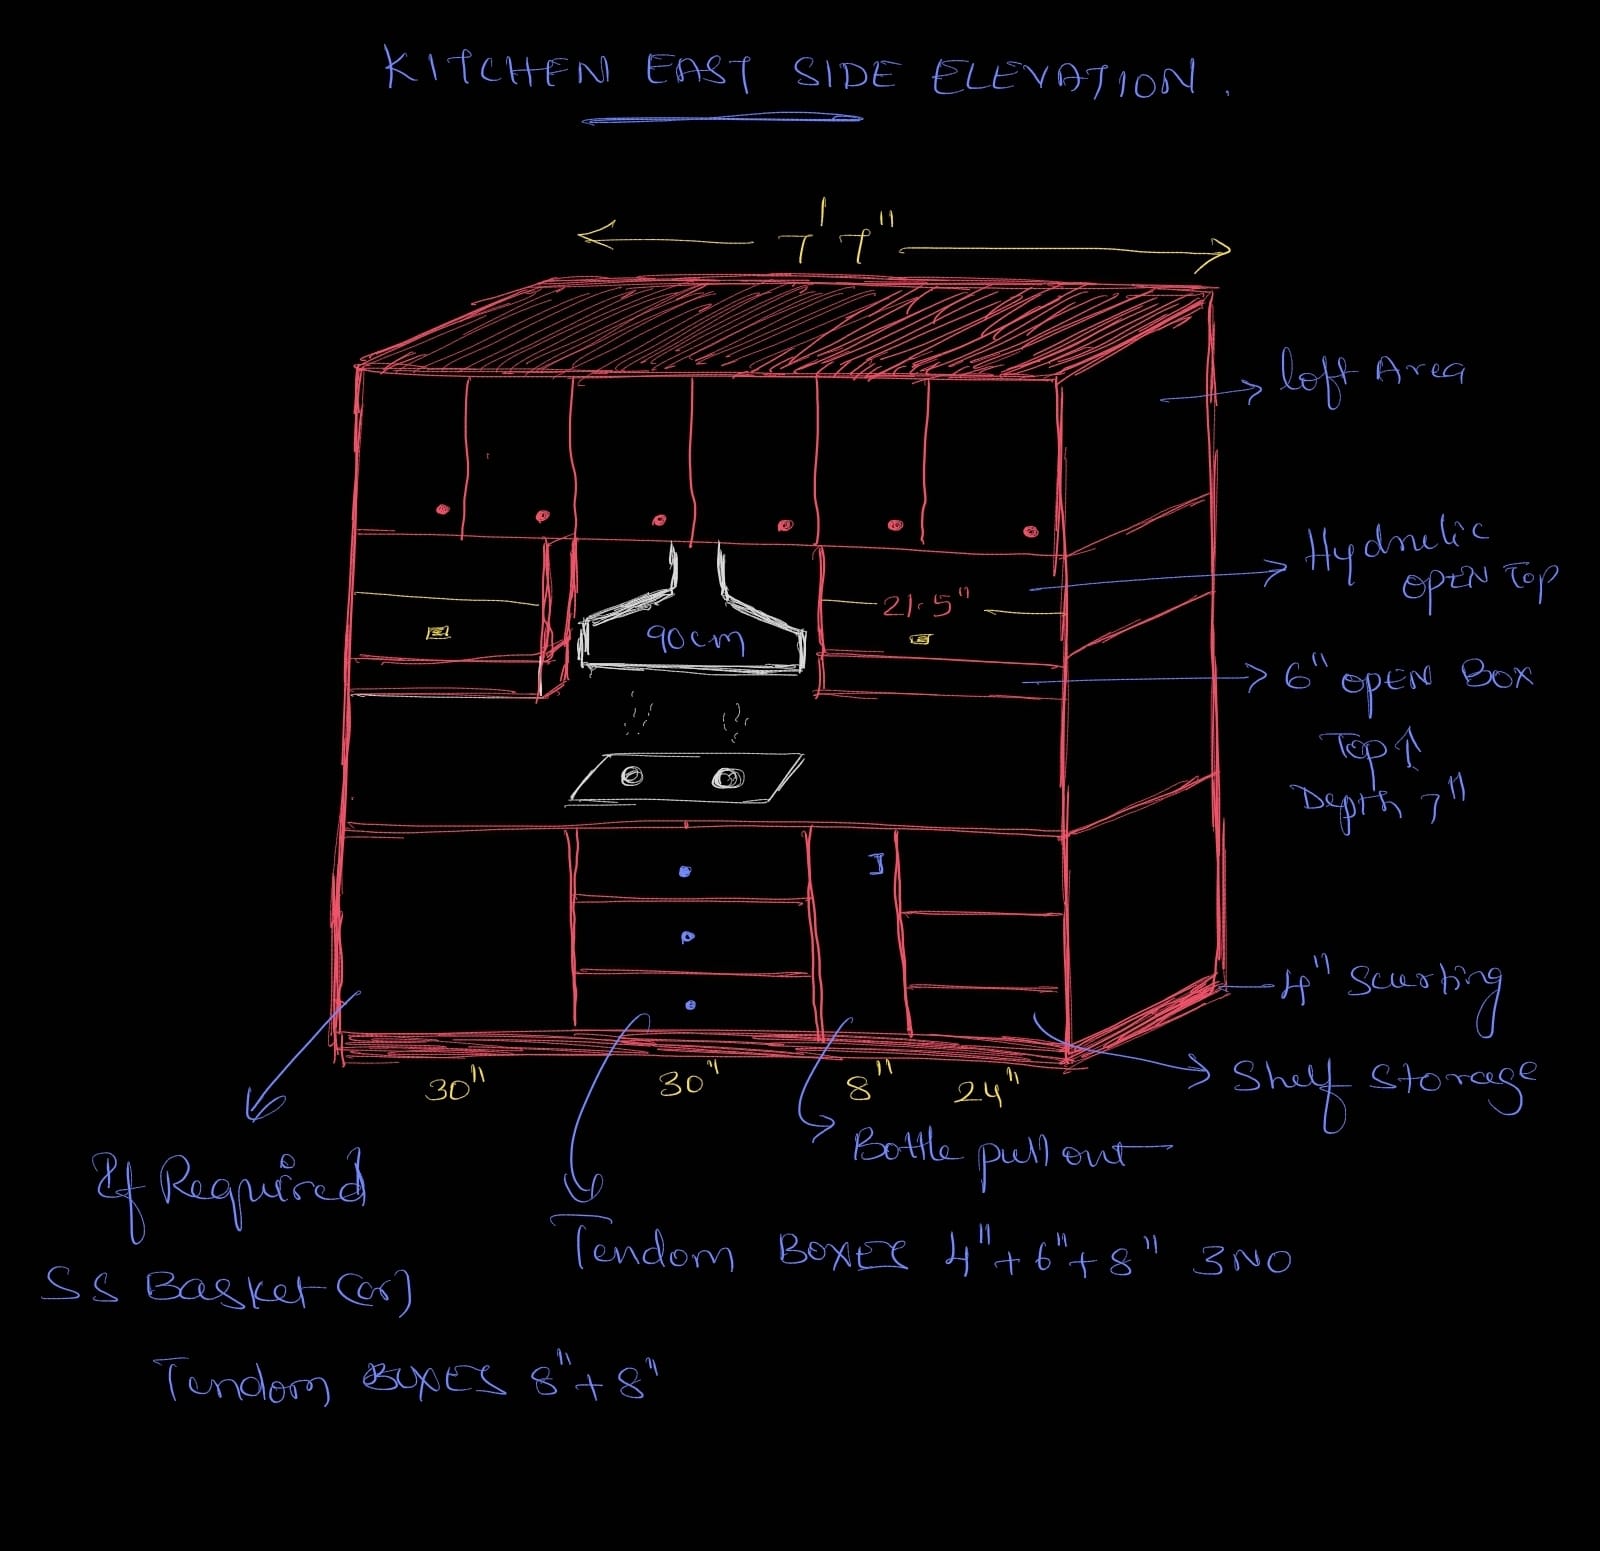 KITCHEN EAST SIDE ELEVATION.
7' 7"
loft Area
Hydrulic
OPEN TOP
21.5"
90cm
6" OPEN BOX
Top ↑
Depth 7"
4" Scurting
Shelf Storage
30" 30" 8" 24"
Bottle pull out
If Required
SS Basket (or)
Tendom BOXES 8" + 8"
Tendom BOXES 4" + 6" + 8" 3NO